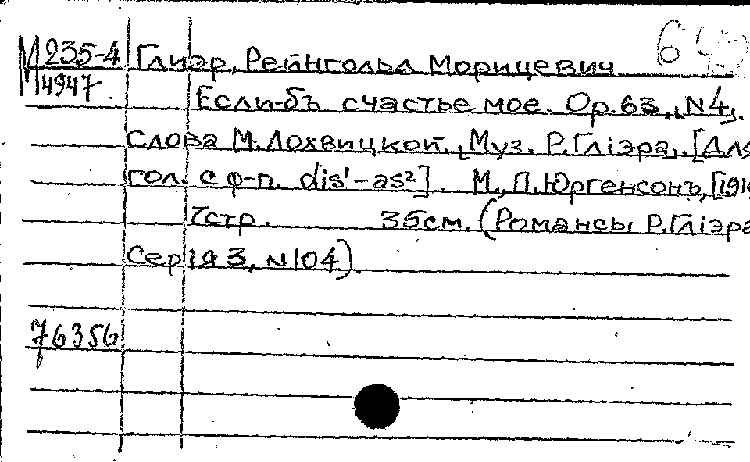 М 235-4 Глиэр, Рейнгольд Морицевич
14947
Если-бъ счастье мое. Op. 63, N4.
Слова М. Лохвицкой. Муз. Р. Глiэра. [Для
гол. с ф-п. dis¹-as²]. М., П. Юргенсонъ,
7стр. 35см. (Романсы Р. Глiэра
Серiя 3, N104).
76356